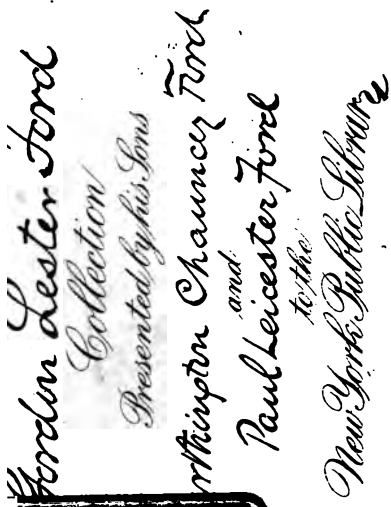 Gordon Lester Ford
Collection
Presented by his Sons
rthington Chauncey Ford
and
Paul Leicester Ford
to the
New York Public Library